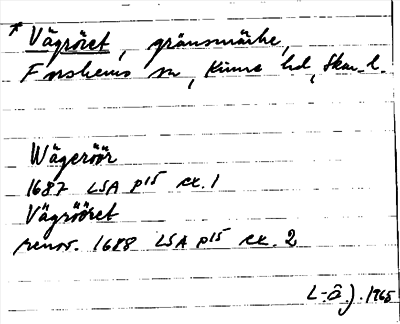 * Vägröret, gränsmärke,
Forshems sn, Kinne hd, Skar. l.
Wägeröör
1687 LSA P15 ck. 1
Vägrööret
renov. 1688 LSA P15 ck. 2
L-Å. J. 1965